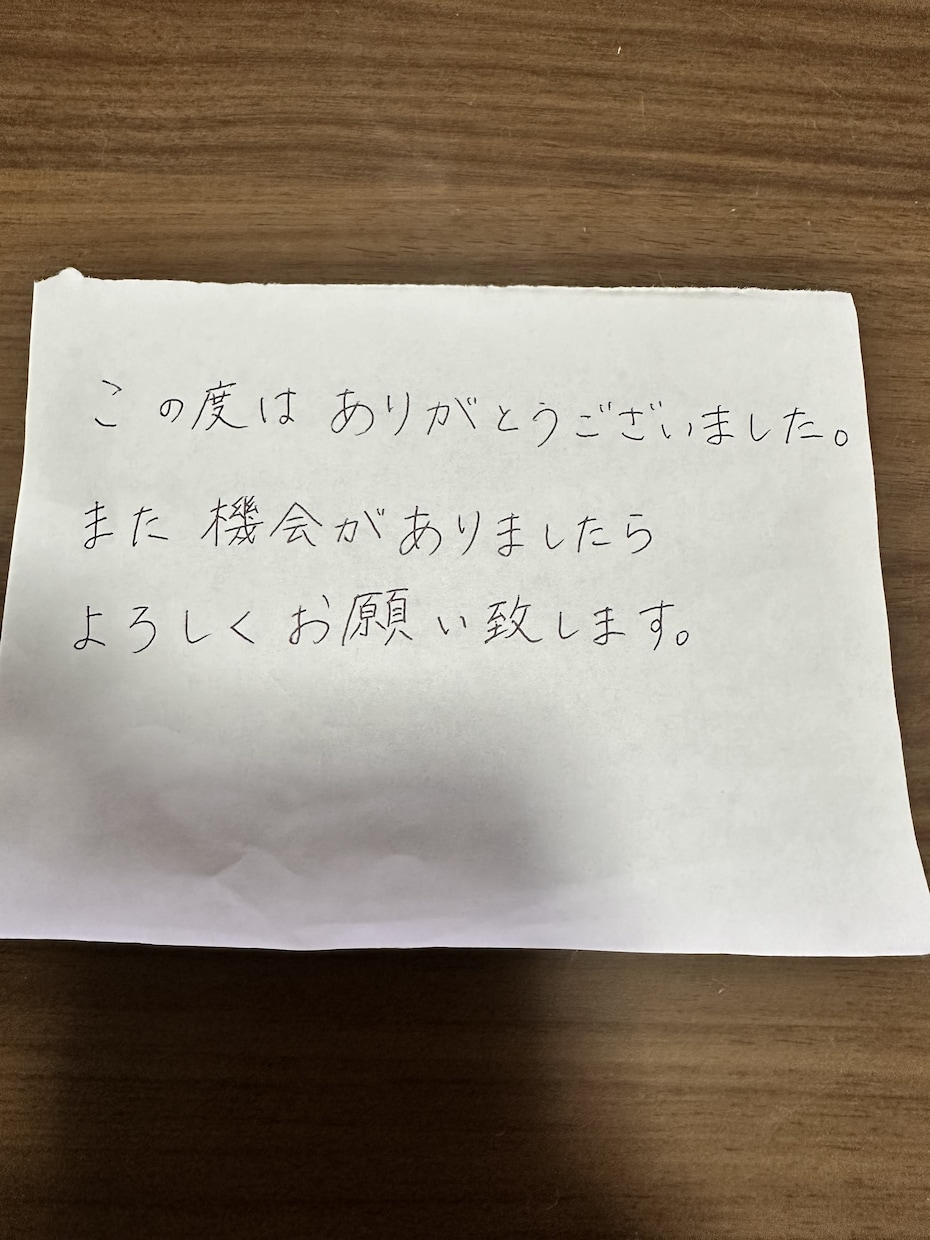 この度は ありがとうございました。
また 機会がありましたら
よろしくお願い致します。